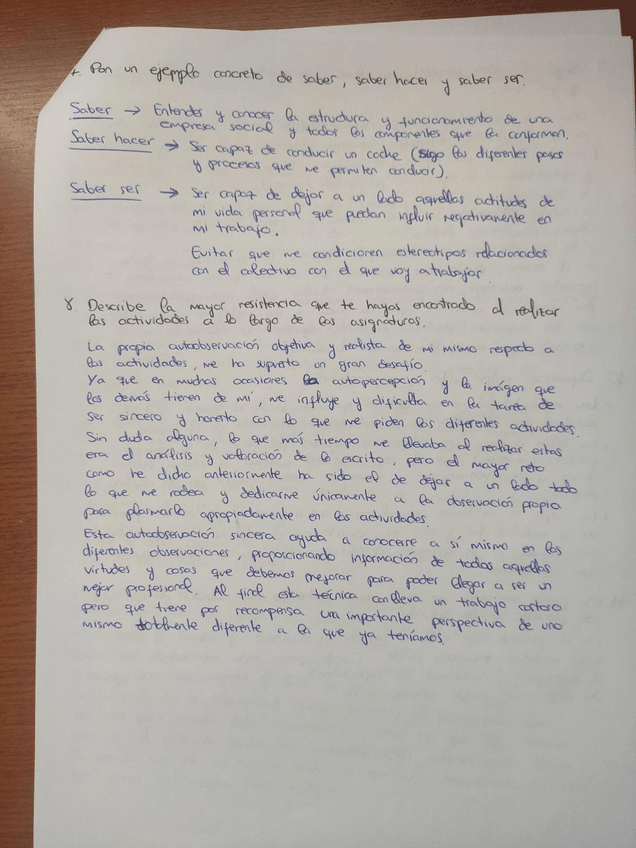 7. Pon un ejemplo concreto de saber, saber hacer y saber ser.
Saber → Entender y conocer la estructura y funcionamiento de una
empresa social y todos los componentes que la conforman.
Saber hacer → Ser capaz de conducir un coche (sigo los diferentes pasos
y procesos que me permiten conducir).
Saber ser → Ser capaz de dejar a un lado aquellas actitudes de
mi vida personal que puedan influir negativamente en
mi trabajo.
Evitar que me condicionen estereotipos relacionados
con el colectivo con el que voy a trabajar
8. Describe la mayor resistencia que te hayas encontrado al realizar
las actividades a lo largo de las asignaturas.
La propia autoobservación objetiva y realista de mi mismo respecto a
las actividades, me ha supuesto un gran desafío.
Ya que en muchas ocasiones la autopercepción y la imágen que
los demás tienen de mí, me influye y dificulta en la tarea de
ser sincero y honesto con lo que me piden las diferentes actividades.
Sin duda alguna, lo que más tiempo me llevaba al realizar estas
era el análisis y valoración de lo escrito, pero el mayor reto
como he dicho anteriormente ha sido el de dejar a un lado todo
lo que me rodea y dedicarme únicamente a la observación propia
para plasmarlo apropiadamente en las actividades.
Esta autoobservación sincera ayuda a conocerse a sí mismo en las
diferentes observaciones, proporcionando información de todas aquellas
virtudes y cosas que debemos mejorar para poder llegar a ser un
mejor profesional. Al final esta técnica conlleva un trabajo costoso
pero que tiene por recompensa una importante perspectiva de uno
mismo diferente a la que ya teníamos.